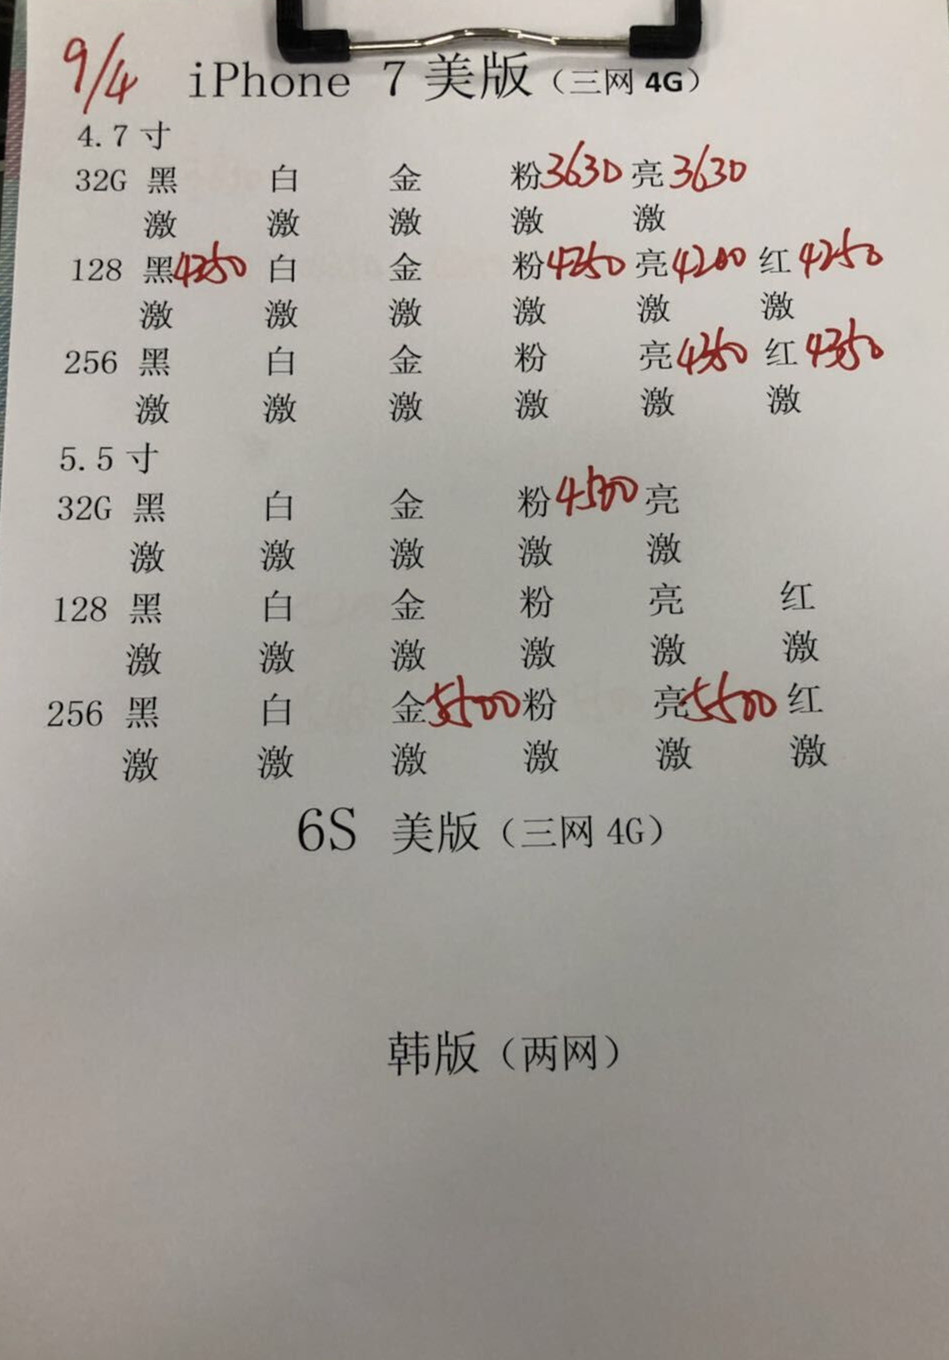 9/4 iPhone 7 美版（三网 4G）
4.7 寸
32G 黑 白 金 粉3630 亮3630
激 激 激 激 激
128 黑4250 白 金 粉4250 亮4200 红4250
激 激 激 激 激 激
256 黑 白 金 粉 亮4350 红4350
激 激 激 激 激 激
5.5 寸
32G 黑 白 金 粉4500 亮
激 激 激 激 激
128 黑 白 金 粉 亮 红
激 激 激 激 激 激
256 黑 白 金5500 粉 亮5500 红
激 激 激 激 激 激
6S 美版（三网 4G）
韩版（两网）